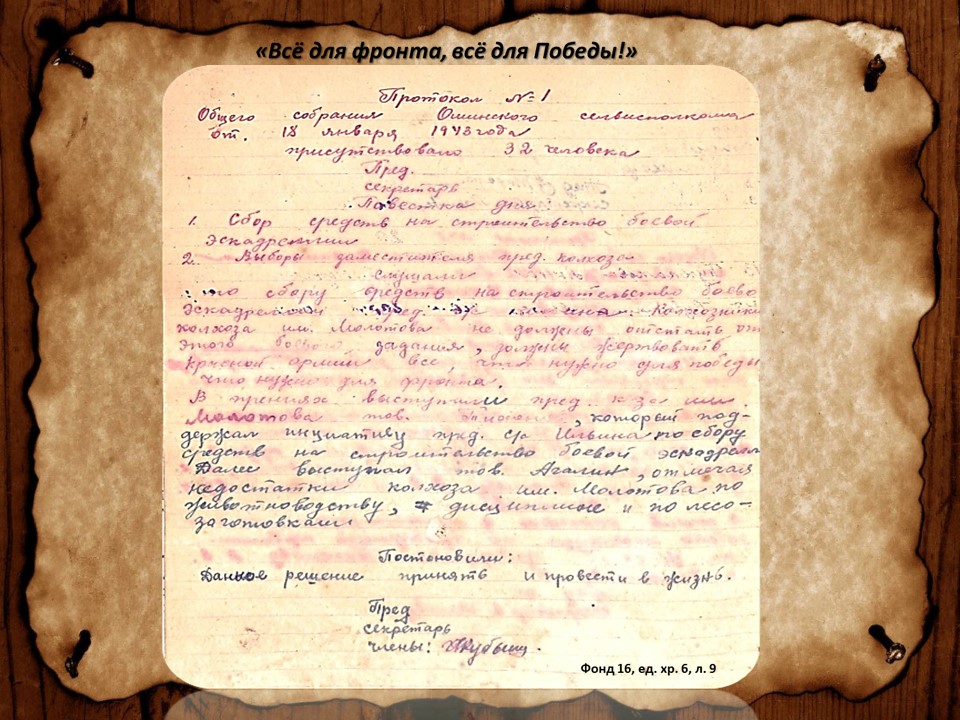 «Всё для фронта, всё для Победы!»
Протокол №1
Общего собрания Ошинского сельисполкома
от. 18 января 1943 года
присутствовало 32 человека
Пред.
секретарь
Повестка дня
1. Сбор средств на строительство боевой
Эскадрелии
2. Выборы заместителя пред. колхоза
слушали
по сбору средств на строительство боево
Эскадрелии пред. Колхозники
колхоза им. Молотова не должны отстать от
этого боевого задания, должны жертвовать
красной армии все, что нужно для победы
что нужно для фронта.
В прениях выступили пред. к-за им.
Молотова тов. , которой под-
держал инциативу пред. с/с Ильина по сбору
средств на строительство боевой эскадрел
Далее выступал тов. Агалин, отмечая
недостатки колхоза им. Молотова по
животноводству, дисциплине и по лесо-
заготовкам
Постоновили:
Данное решение принять и провести в жизнь.
Пред
секретарь
члены:
Фонд 16, ед. хр. 6, л. 9